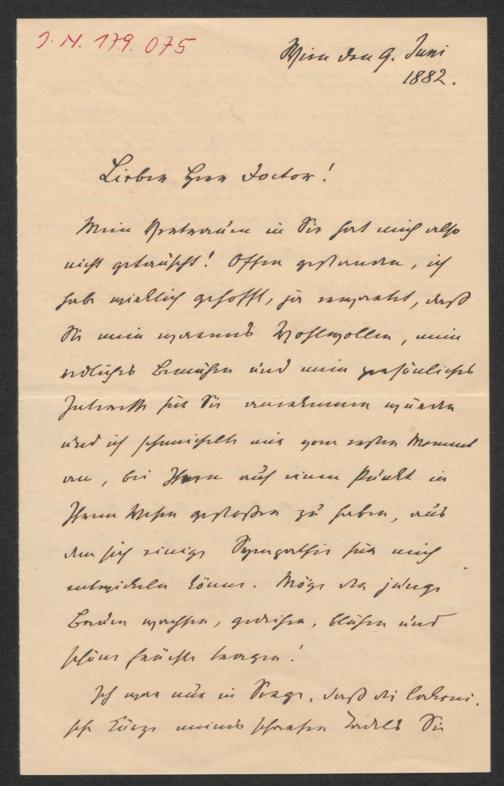 J. N. 179.075
Wien den 9. Juni
1882.
Lieber Herr Doctor!
Mein Vertrauen in Sie hat mich also
nicht getäuscht! Offen gestanden, ich
habe wirklich gehofft, ja erwartet, daß
Sie mein warmes Wohlwollen, mein
redliches Bemühen und mein persönliches
Interesse für Sie anerkennen würden
und ich schmeichelte mir vom ersten Moment
an, bei Ihnen auf einen Punkt in
Ihrem Wesen gestoßen zu haben, aus
dem sich einige Sympathie für mich
entwickeln könne. Möge der junge
Baum wachsen, gedeihen, blühen und
schöne Früchte tragen!
Ich war nur in Sorge, daß die lakoni-
sche Kürze meines scharfen Tadels Sie